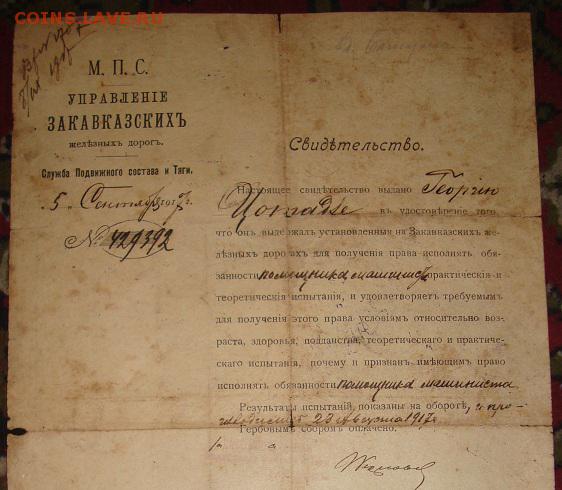 COINS.LAVE.RU
М. П. С.
УПРАВЛЕНІЕ
ЗАКАВКАЗСКИХЪ
желѣзныхъ дорогъ.
Служба Подвижного состава и Тяги.
5 Сентября
№ 429392
Свидѣтельство.
Настоящее свидѣтельство выдано Георгію
въ удостовѣреніе того
что онъ выдержалъ установленныя на Закавказскихъ же-
лѣзныхъ дорогахъ для полученія права исполнять обя-
занности помощника машиниста практическія и
теоретическія испытанія, и удовлетворяетъ требуемымъ
для полученія этого права условіямъ относительно воз-
раста, здоровья, подданства, теоретическаго и практиче-
скаго испытанія, почему и признанъ имѣющимъ право
исполнять обязанности помощника машиниста
Результаты испытаній показаны на оборотѣ,
23 Августа 1917 г.
Гербовымъ сборомъ оплачено.